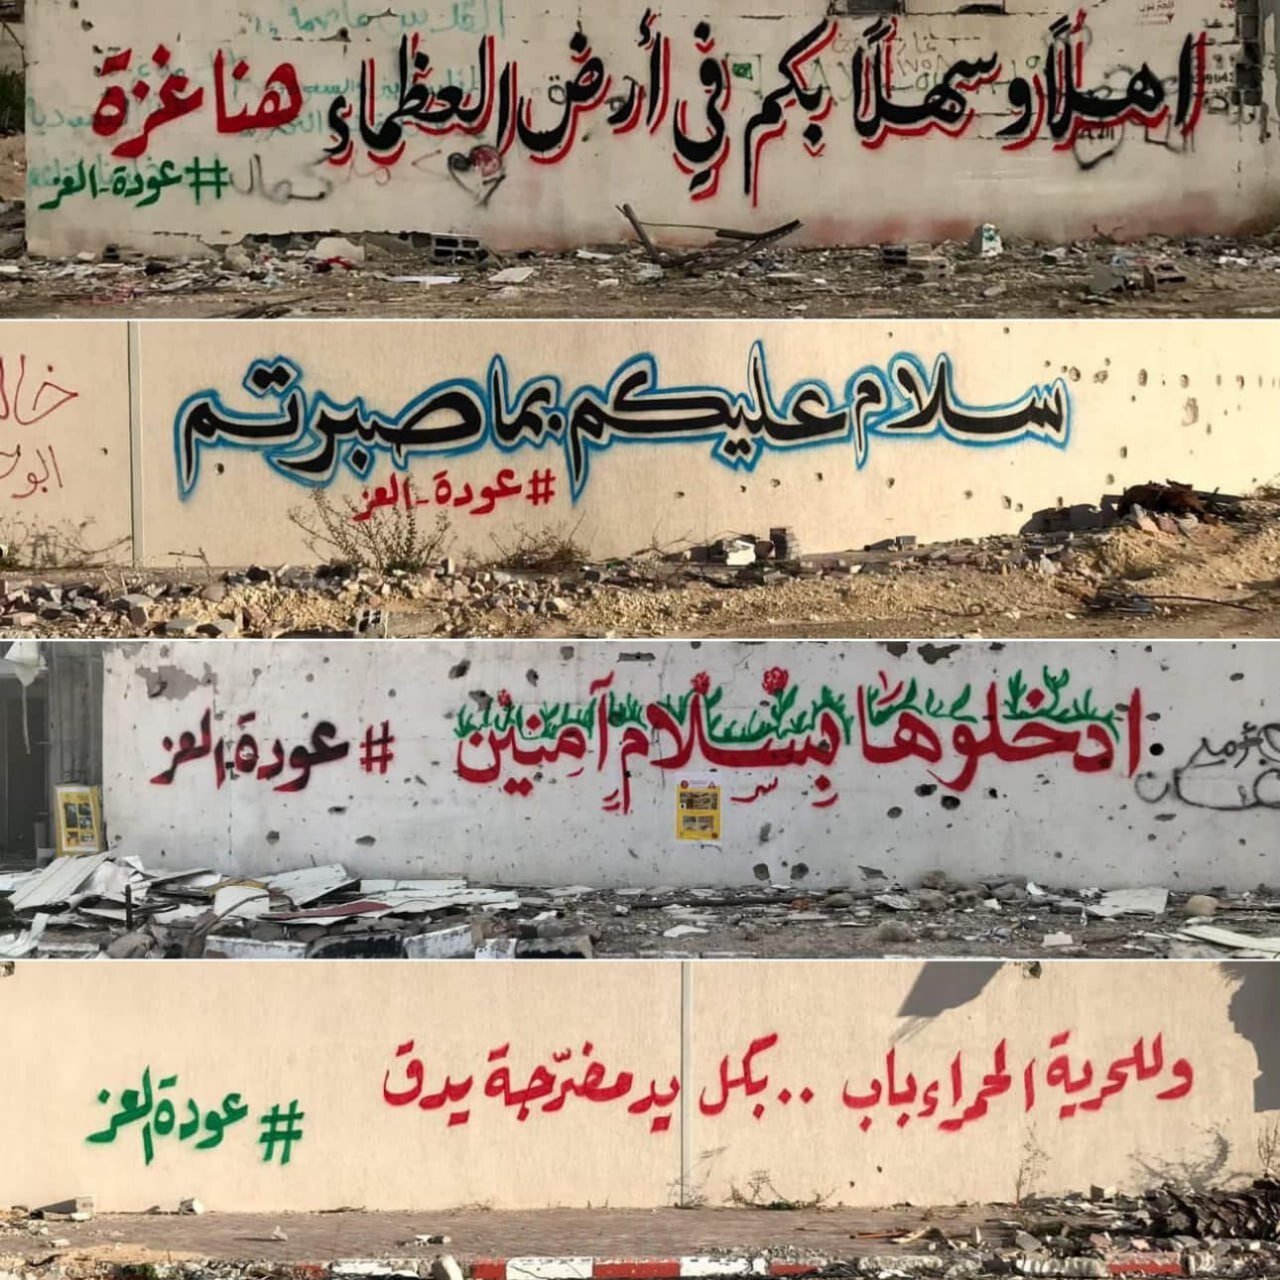 اهلًا وسهلًا بكم في أرض العظماء هنا غزة
#عودة_العز
سلام عليكم بما صبرتم
#عودة_العز
ادخلوها بسلام آمنين
#عودة العز
وللحرية الحمراء باب .. بكل يد مضرّجة يدق
#عودة العز